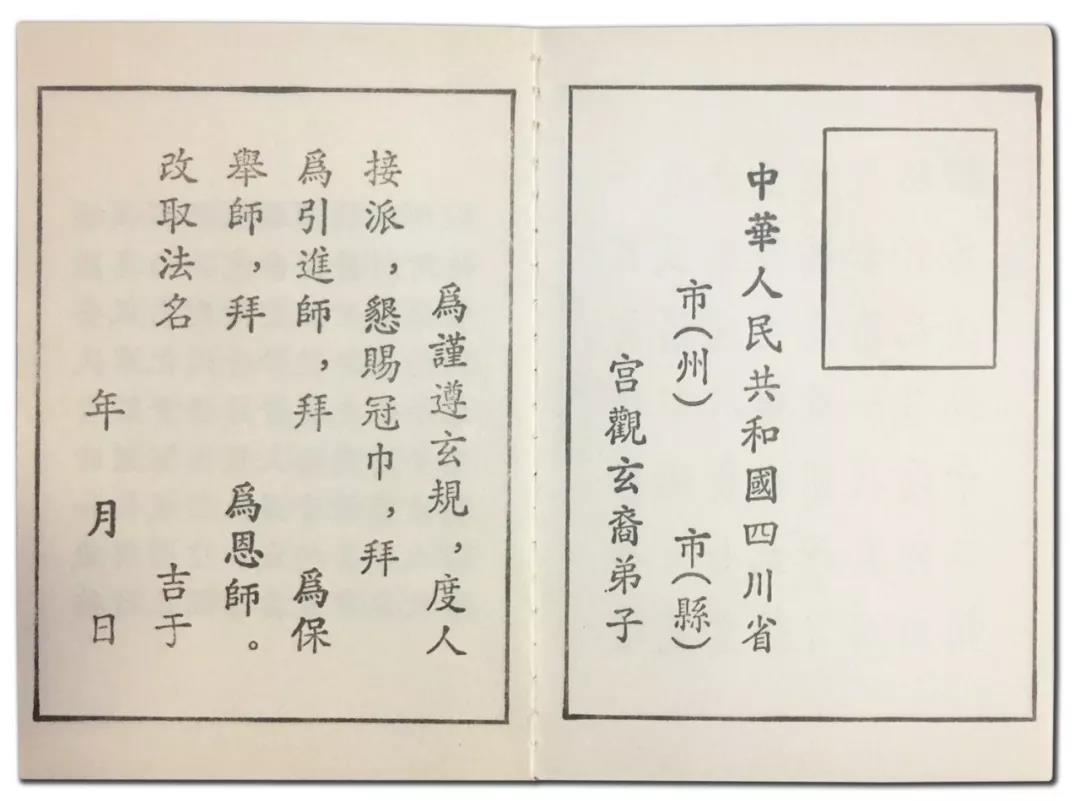 中華人民共和國四川省
市(州) 市(縣)
宮觀玄裔弟子
爲謹遵玄規，度人
接派，懇賜冠巾，拜
爲引進師，拜 爲保
舉師，拜 爲恩師。
改取法名 吉于
年 月 日